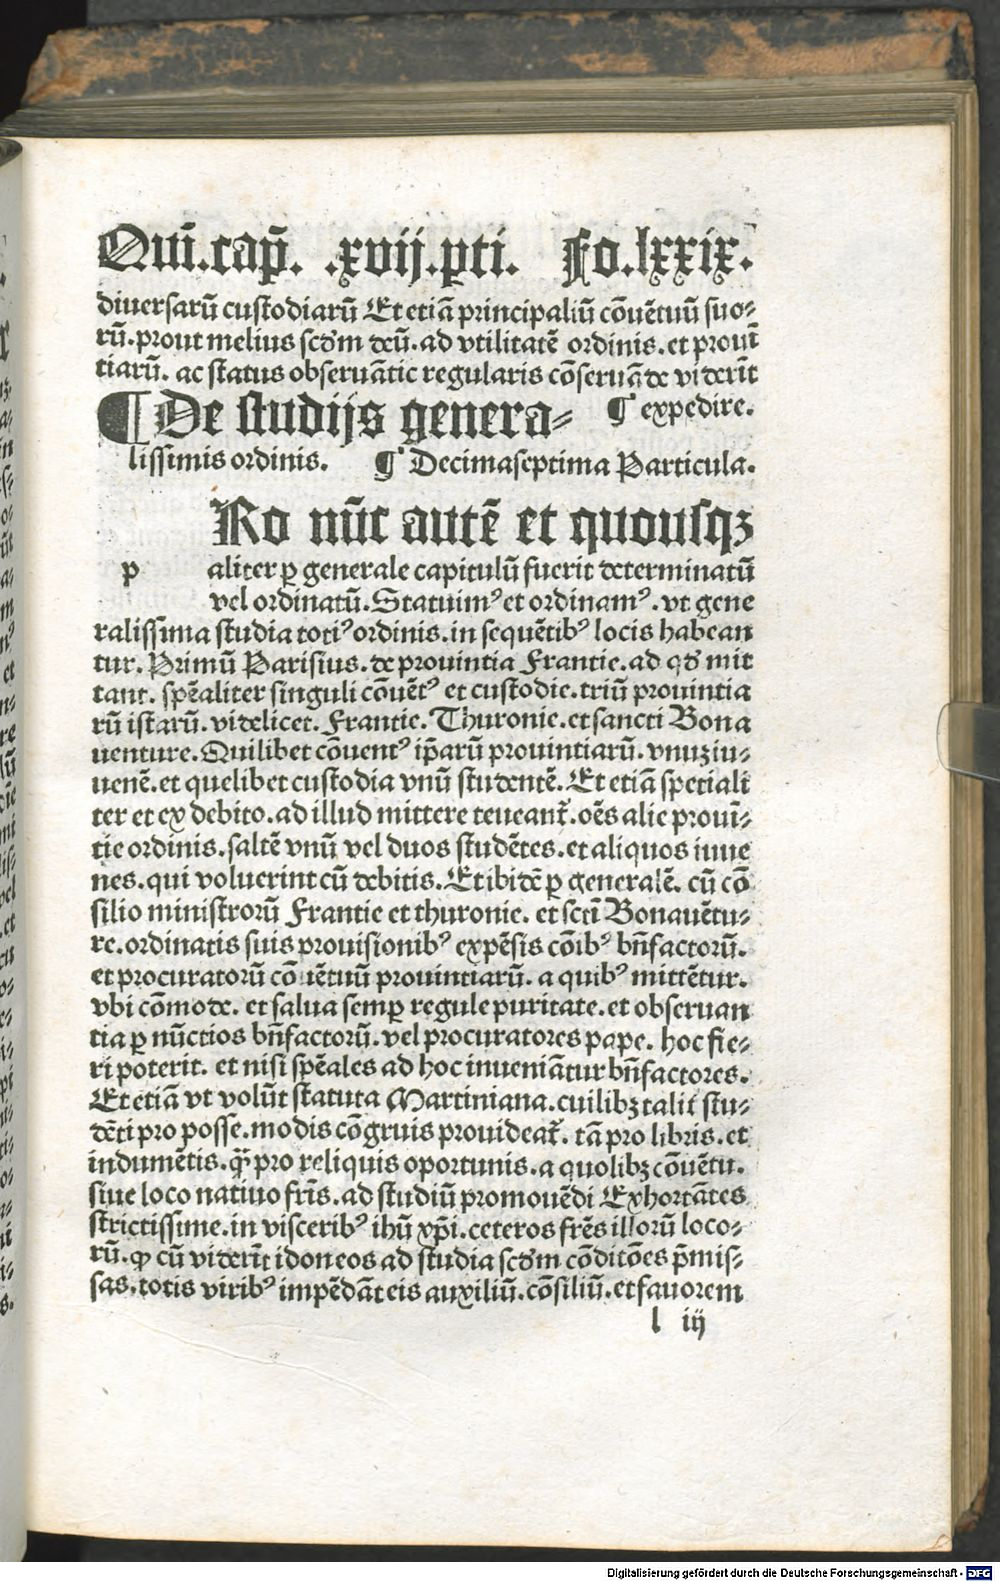 Quĩ.cap̃. .xvij.pti. Fo.lxxix.
diuersarũ custodiarũ Et etiã principaliũ cõuẽtuũ suo⸗
rũ.prout melius scđm deũ.ad vtilitatẽ ordinis.et prouĩ
tiarũ. ac status obseruãtie regularis cõseruãde viderĩt
¶ De studijs genera⸗ ¶ expedire.
lissimis ordinis. ¶ Decimaseptima Particula.
Ro nũc autẽ et quousqꝫ
p aliter ꝑ generale capitulũ fuerit determinatũ
vel ordinatũ.Statuimꝰ et ordinamꝰ.vt gene
ralissima studia totiꝰ ordinis.in sequẽtibꝰ locis habean
tur. Primũ Parisius.de prouintia Frantie.ad qđ mit
tant. spẽaliter singuli cõuẽtꝰ et custodie.triũ prouintia
rũ istarũ.videlicet.Frantie.Thuronie.et sancti Bona
uenture.Quilibet cõuentꝰ ip̃arũ prouintiarũ.vnuz iu⸗
uenẽ.et quelibet custodia vnũ studentẽ.Et etiã spetiali
ter et ex debito.ad illud mittere teneant᷑.oẽs alie prouĩ⸗
tie ordinis.saltẽ vnũ vel duos studẽtes.et aliquos iuue
nes.qui voluerint cũ debitis.Et ibidẽ ꝑ generalẽ. cũ cõ
silio ministrorũ Frantie et thuronie. et sctĩ Bonauẽtu⸗
re.ordinatis suis prouisionibꝰ expẽsis cõibꝰ bñfactorũ.
et procuratorũ cõuẽtuũ prouintiarũ. a quibꝰ mittẽtur.
vbi cõmode. et salua semꝑ regule puritate.et obseruan
tia ꝑ nũctios bñfactorũ.vel procuratores pape. hoc fie⸗
ri poterit. et nisi spẽales ad hoc inueniãtur bñfactores.
Et etiã vt volũt statuta Martiniana.cuilibꝫ talit᷑ stu⸗
dẽti pro posse.modis cõgruis prouideat᷑. tã pro libris.et
indumẽtis.q̃ꝫ pro reliquis oportunis.a quolibꝫ cõuẽtu.
siue loco natiuo fr̃is.ad studiũ promouẽdi Exhortãtes
strictissime.in visceribꝰ ihũ xp̃i.ceteros fr̃es illorũ loco⸗
rũ.ꝙ cũ viderĩt idoneos ad studia scđm cõditões p̃mis⸗
sas.totis viribꝰ impẽdãt eis auxiliũ.cõsiliũ.et fauorem
l iij
Digitalisierung gefördert durch die Deutsche Forschungsgemeinschaft - DFG